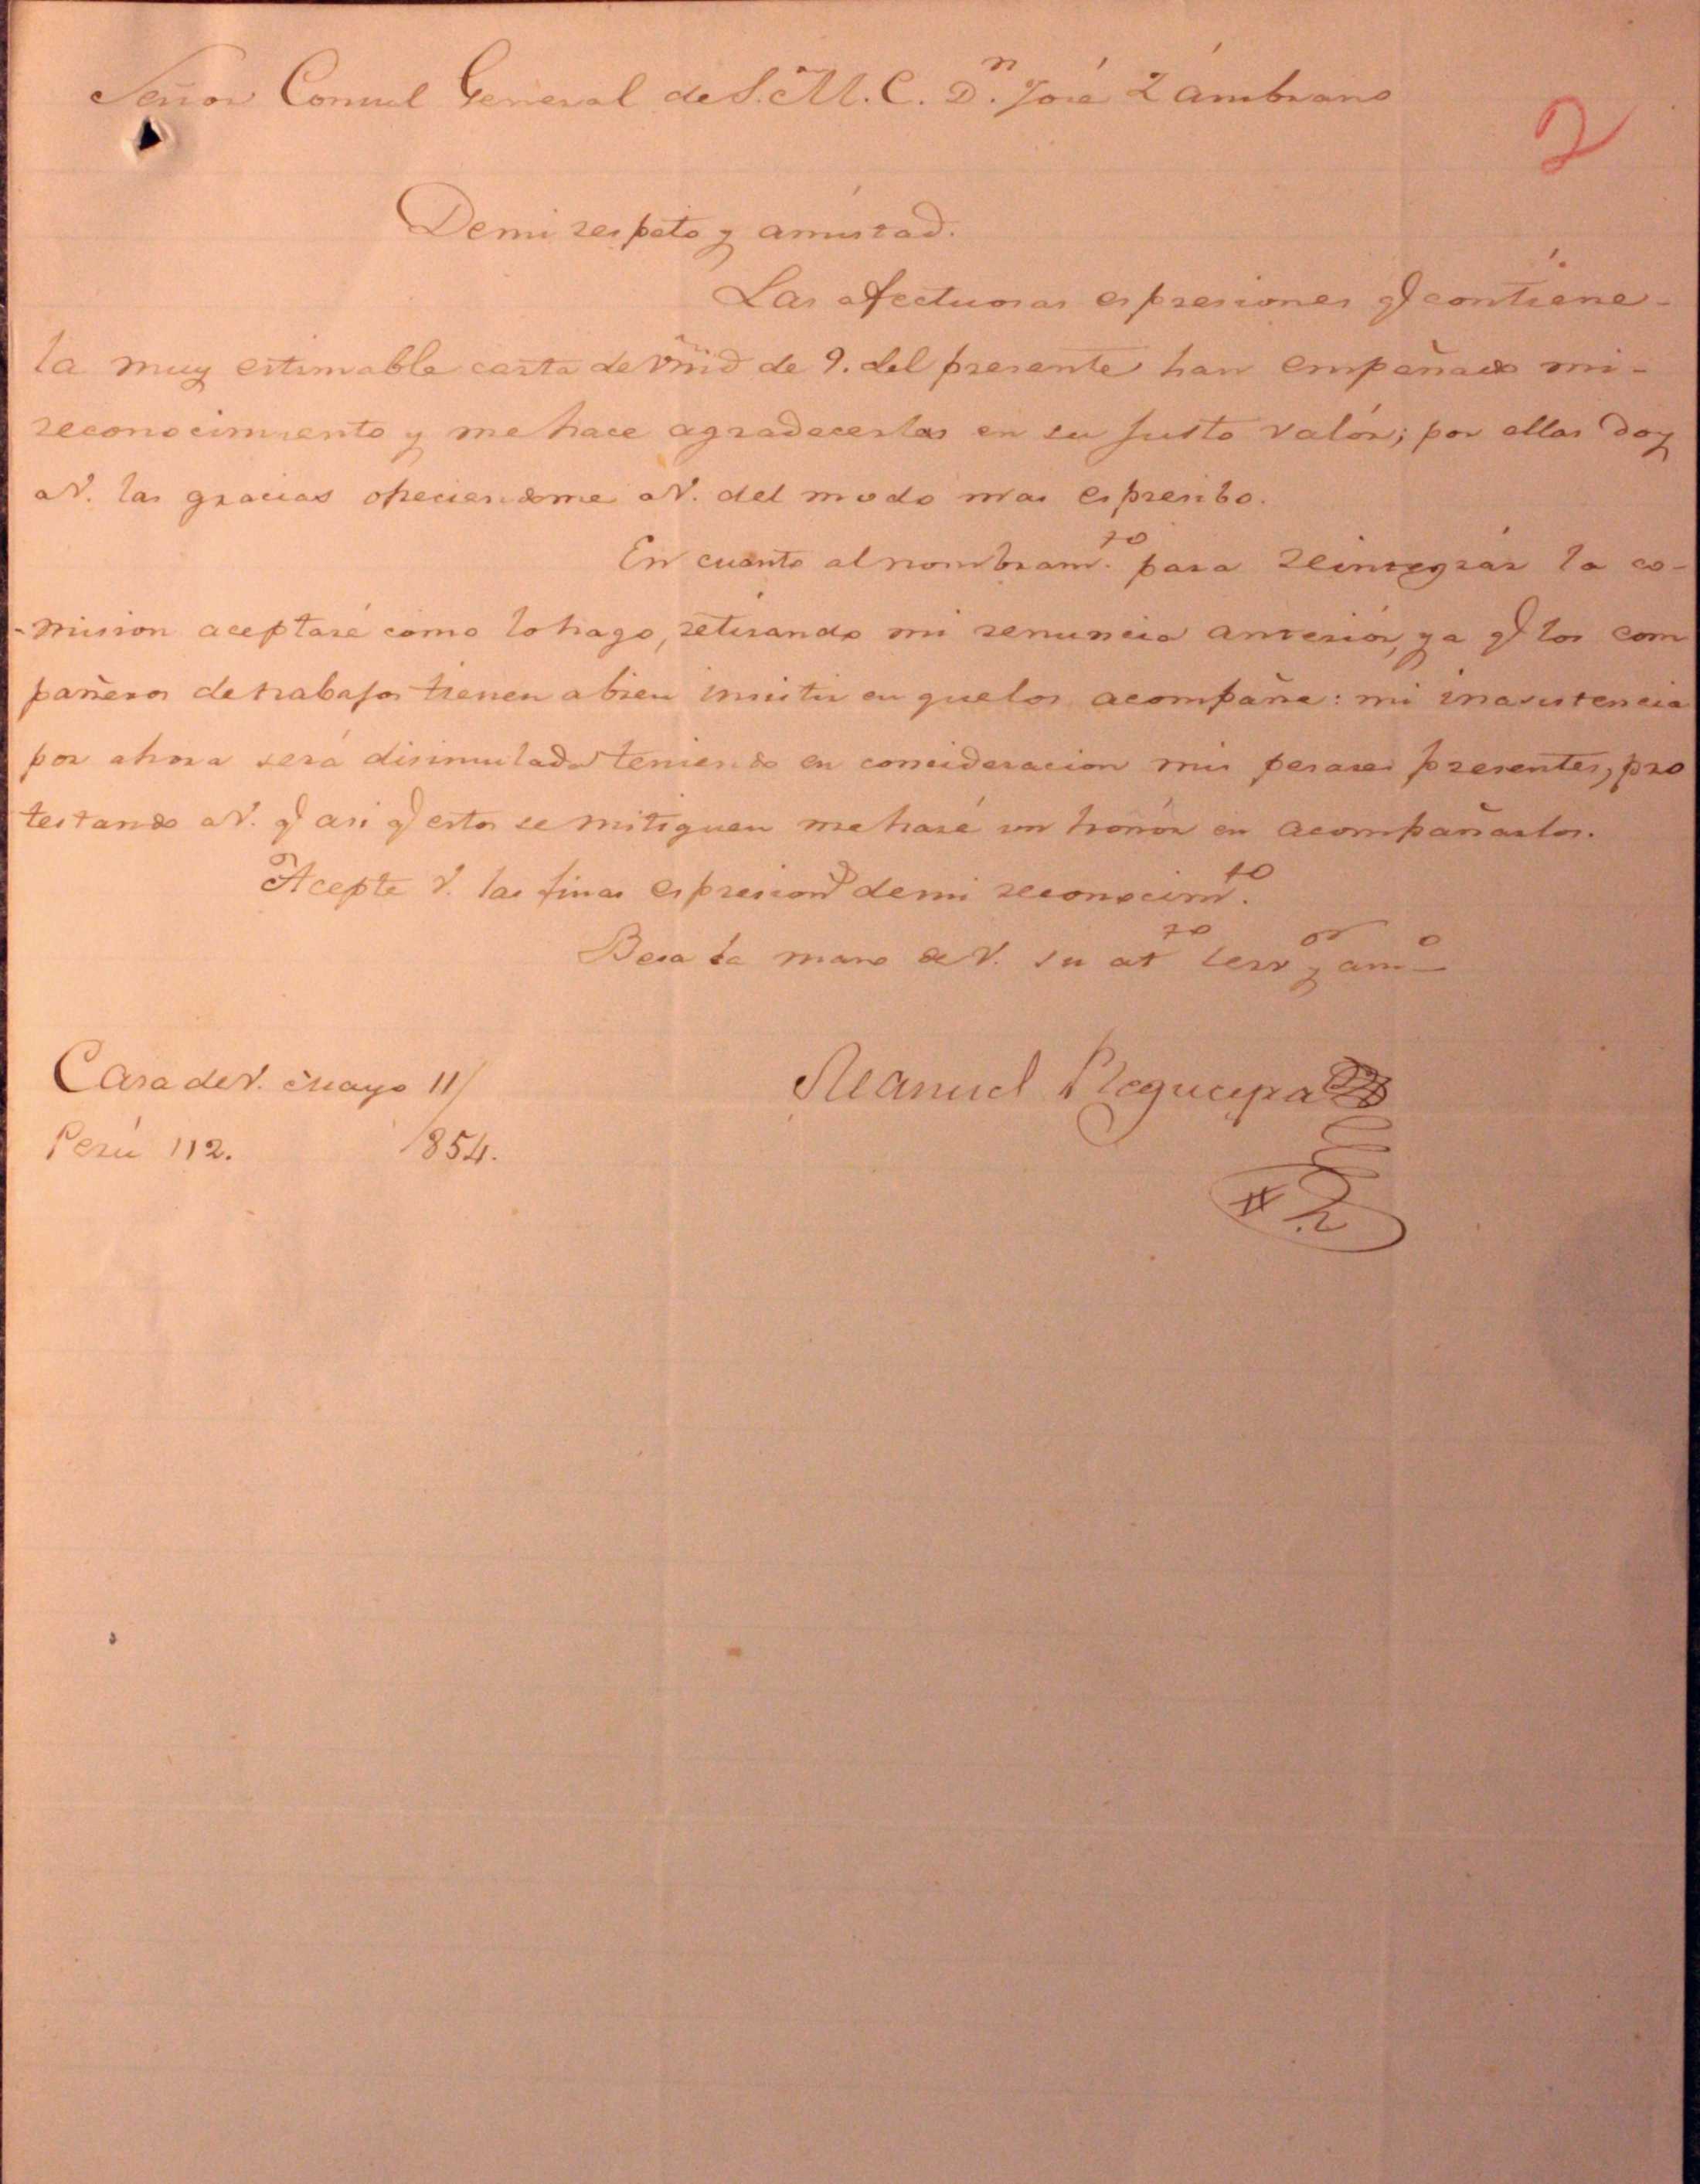 Señor Consul General de S. M. C. D.n José Zámbrano
2
De mi respeto y amistad.
Las afectuosas espresiones q.e contiene-
la muy estimable carta de Vmd de 9. del presente han empeñado mi-
reconocimiento y me hace agradecerlas en su justo valór; por ellas doy
a V. las gracias ofreciendome a V. del modo mas espresibo.
En cuanto al nombram.to para reintegrár la co-
-mision aceptaré como lo hago, retirando mi renuncia anteriór, ya q.e los com
pañeros de trabajos tienen a bien insistir en que los acompañe: mi inasistencia
por ahora será disimulada teniendo en concideracion mis pesares presentes, pro
testando a V. q.e asi q.e estos se mitiguen me haré un honór en acompañarlos.
Acepte V. las finas espresion.s de mi reconocim.to
Besa la mano de V. su at.to serv.or y am.o
Casa de V. Mayo 11/
Manuel
Perú 112. 1854.